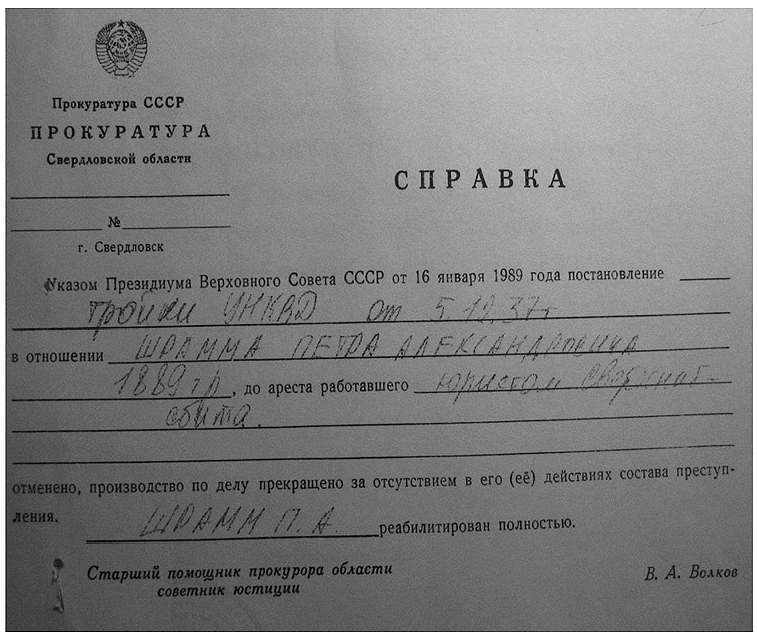 Прокуратура СССР
ПРОКУРАТУРА
Свердловской области
СПРАВКА
№
г. Свердловск
Указом Президиума Верховного Совета СССР от 16 января 1989 года постановление
тройки УНКВД от 5.12.37г
в отношении ШРАММА ПЕТРА АЛЕКСАНДРОВИЧА
1889 гр, до ареста работавшего юристом
сбыта.
отменено, производство по делу прекращено за отсутствием в его (её) действиях состава преступ-
ления. ШРАММ П. А. реабилитирован полностью.
Старший помощник прокурора области
советник юстиции
В. А. Волков